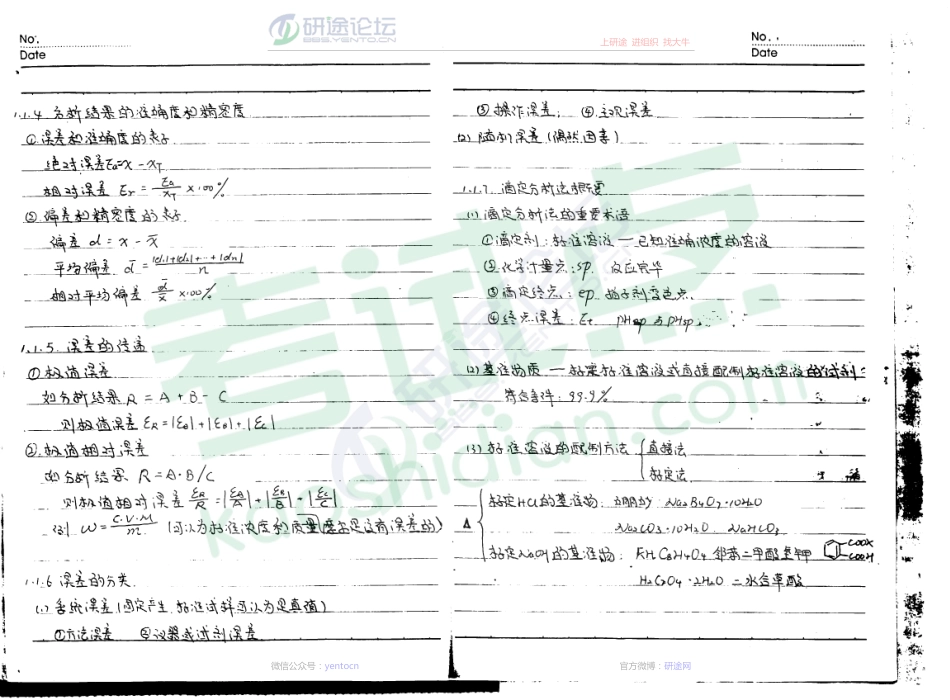 研途论坛
BBS.YENTO.CN
上研途 进组织 找大牛
No.
Date
1.1.4 分析结果的准确度和精密度
①误差和准确度的表示
绝对误差Ea=x-xT
相对误差 Er = Ea/xT ×100%
②偏差和精密度的表示
偏差 d = x - x̄
平均偏差 d̄ = |d1|+|d2|+…+|dn| / n
相对平均偏差 d̄/x̄ ×100%
1.1.5. 误差的传递
①极值误差
如分析结果 R = A + B - C
则极值误差 εR = |εA| + |εB| + |εC|
②极值相对误差
如分析结果 R = A·B/C
则极值相对误差 εR/R = |εA/A| + |εB/B| + |εC/C|
例 ω = C·V·M/m (可认为标准浓度和质量
1.1.6 误差的分类
(1) 系统误差 (固定产生, 标准试样可认为是真值)
①方法误差 ②仪器或试剂误差
No.
Date
③操作误差; ④主观误差
(2) 随机误差 (偶然因素)
1.1.7. 滴定分析法概要
(1) 滴定分析法的重要术语
①滴定剂: 标准溶液 — 已知准确浓度的溶液
②化学计量点: sp. 反应完毕
③滴定终点: ep. 指示剂变色点.
④终点误差: Et. pHep 与 pHsp.
(2) 基准物质 — 标定标准溶液或直接配制标准溶液的试剂
符合条件: 99.9%
(3) 标准溶液的配制方法 { 直接法
标定法
Δ { 标定HCl的基准物: 硼砂 Na2B4O7·10H2O
Na2CO3·10H2O NaHCO3
标定NaOH的基准物: KHC8H4O4 邻苯二甲酸氢钾 COOK COOH
H2C2O4·2H2O 二水合草酸
考试点
kaoshidian.com
微信公众号：yentocn
官方微博：研途网